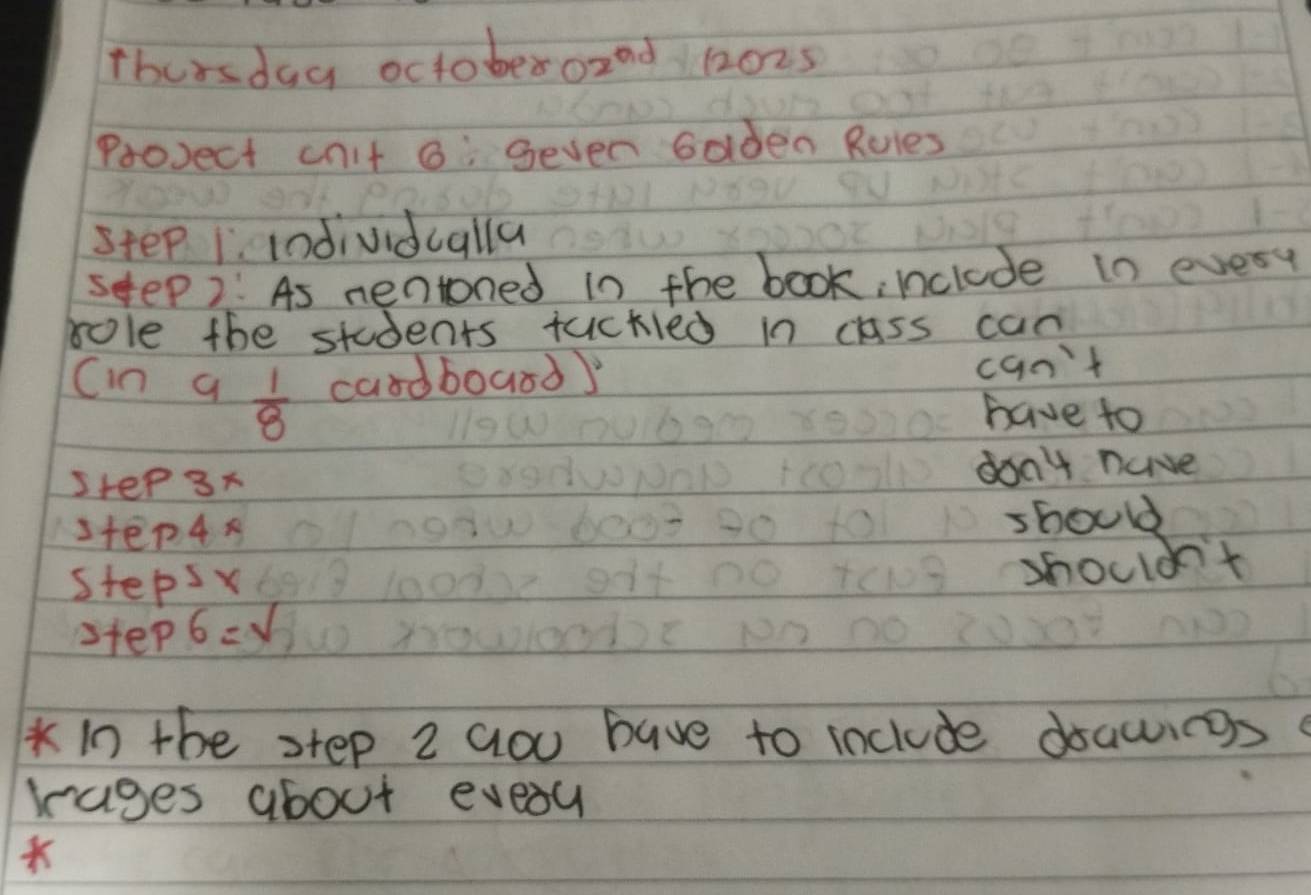 Thursday october 02nd 2025
Project unit 6: Seven Golden Rules
Step 1: individually
Step 2: As mentioned in the book, include in every
role the students tackled in class can
(in a 1/8 cardboard)
can't
have to
don't have
should
shouldn't
Step 3 x
Step 4 x
Step 5 x
Step 6 = √
* In the step 2 you have to include drawings
images about every
*